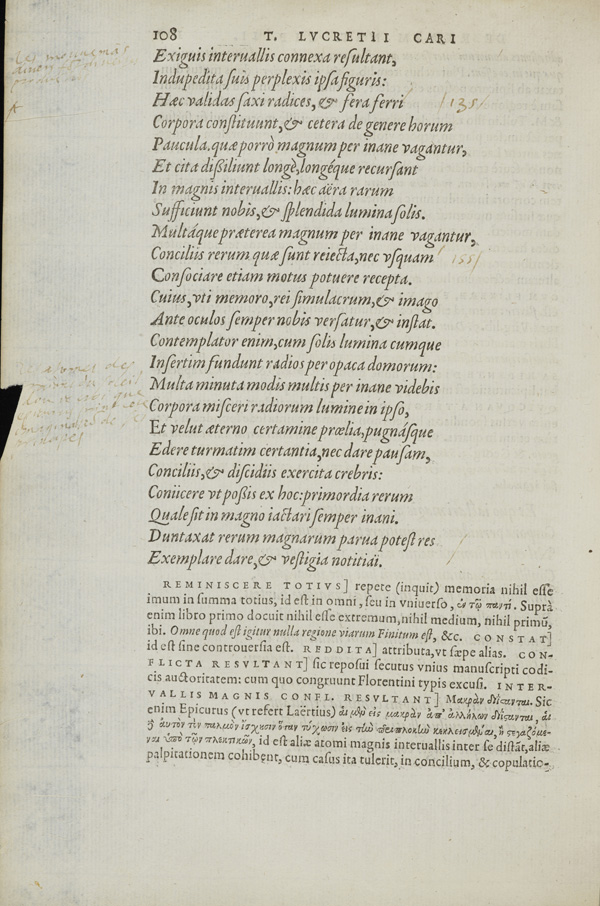 108 T. LVCRETII CARI
Exiguis interuallis connexa resultant,
Indupedita suis perplexis ipsa figuris:
Hæc validas saxi radices, & fera ferri 135
Corpora constituunt, & cetera de genere horum
Paucula, quæ porrò magnum per inane vagantur,
Et cita dißiliunt longè, longéque recursant
In magnis interuallis: hæc aëra rarum
Sufficiunt nobis, & splendida lumina solis.
Multáque præterea magnum per inane vagantur,
Conciliis rerum quæ sunt reiecta, nec vsquam 155
Consociare etiam motus potuere recepta.
Cuius, vti memoro, rei simulacrum, & imago
Ante oculos semper nobis versatur, & instat.
Contemplator enim, cum solis lumina cumque
Insertim fundunt radios per opaca domorum:
Multa minuta modis multis per inane videbis
Corpora misceri radiorum lumine in ipso,
Et velut æterno certamine prœlia, pugnásque
Edere turmatim certantia, nec dare pausam,
Conciliis, & discidiis exercita crebris:
Coniicere vt poßis ex hoc: primordia rerum
Quale sit in magno iactari semper inani.
Duntaxat rerum magnarum parua potest res
Exemplare dare, & vestigia notitiaï.
REMINISCERE TOTIVS] repete (inquit) memoria nihil esse
imum in summa totius, id est in omni, seu in vniuerso, ἐν τῷ παντί. Suprà
enim libro primo docuit nihil esse extremum, nihil medium, nihil primũ,
ibi. Omne quod est igitur nulla regione viarum Finitum est, &c. CONSTAT]
id est sine controuersia est. REDDITA] attributa, vt sæpe alias. CON-
FLICTA RESVLTANT] sic reposui secutus vnius manuscripti codi-
cis auctoritatem: cum quo congruunt Florentini typis excusi. INTER-
VALLIS MAGNIS CONFL. RESVLTANT] Μακρὰν διΐστανται. Sic
enim Epicurus (vt refert Laërtius) αἱ μὲν εἰς μακρὰν ἀπ' ἀλλήλων διΐστανται, αἱ
αὐτὸν τὸν παλμὸν ἴσχουσιν ὅταν τύχωσιν
ὑπὸ τῶν πλεκτικῶν, id est aliæ atomi magnis interuallis inter se distãt, aliæ
palpitationem cohibent, cum casus ita tulerit, in concilium, & copulatio-